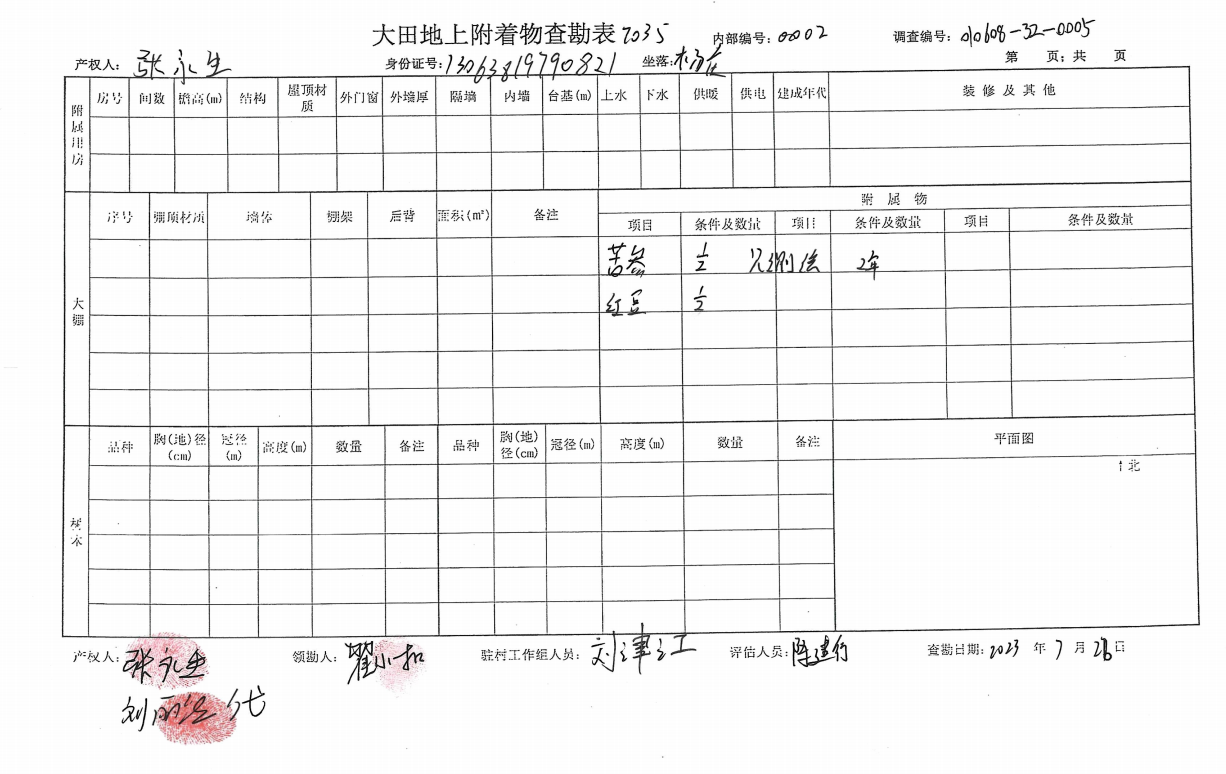 大田地上附着物查勘表 7035 内部编号: 0002 调查编号: 010608-32-0005
产权人: 张永生 身份证号: 13063819790821 坐落: 第 页; 共 页
附属用房 房号 间数 檐高(m) 结构 屋顶材质 外门窗 外墙厚 隔墙 内墙 台基(m) 上水 下水 供暖 供电 建成年代 装修及其他
大棚 序号 棚顶材质 墙体 棚架 后背 面积(m²) 备注 附属物
项目 条件及数量 项目 条件及数量 项目 条件及数量
苦参 1/2 2年
红豆 1/2
树木 品种 胸(地)径(cm) 冠径(m) 高度(m) 数量 备注 品种 胸(地)径(cm) 冠径(m) 高度(m) 数量 备注 平面图
↑北
产权人: 张永生 领勘人: 翟小扣 驻村工作组人员: 评估人员: 陈建行 查勘日期: 2023 年 7 月 28 日
代